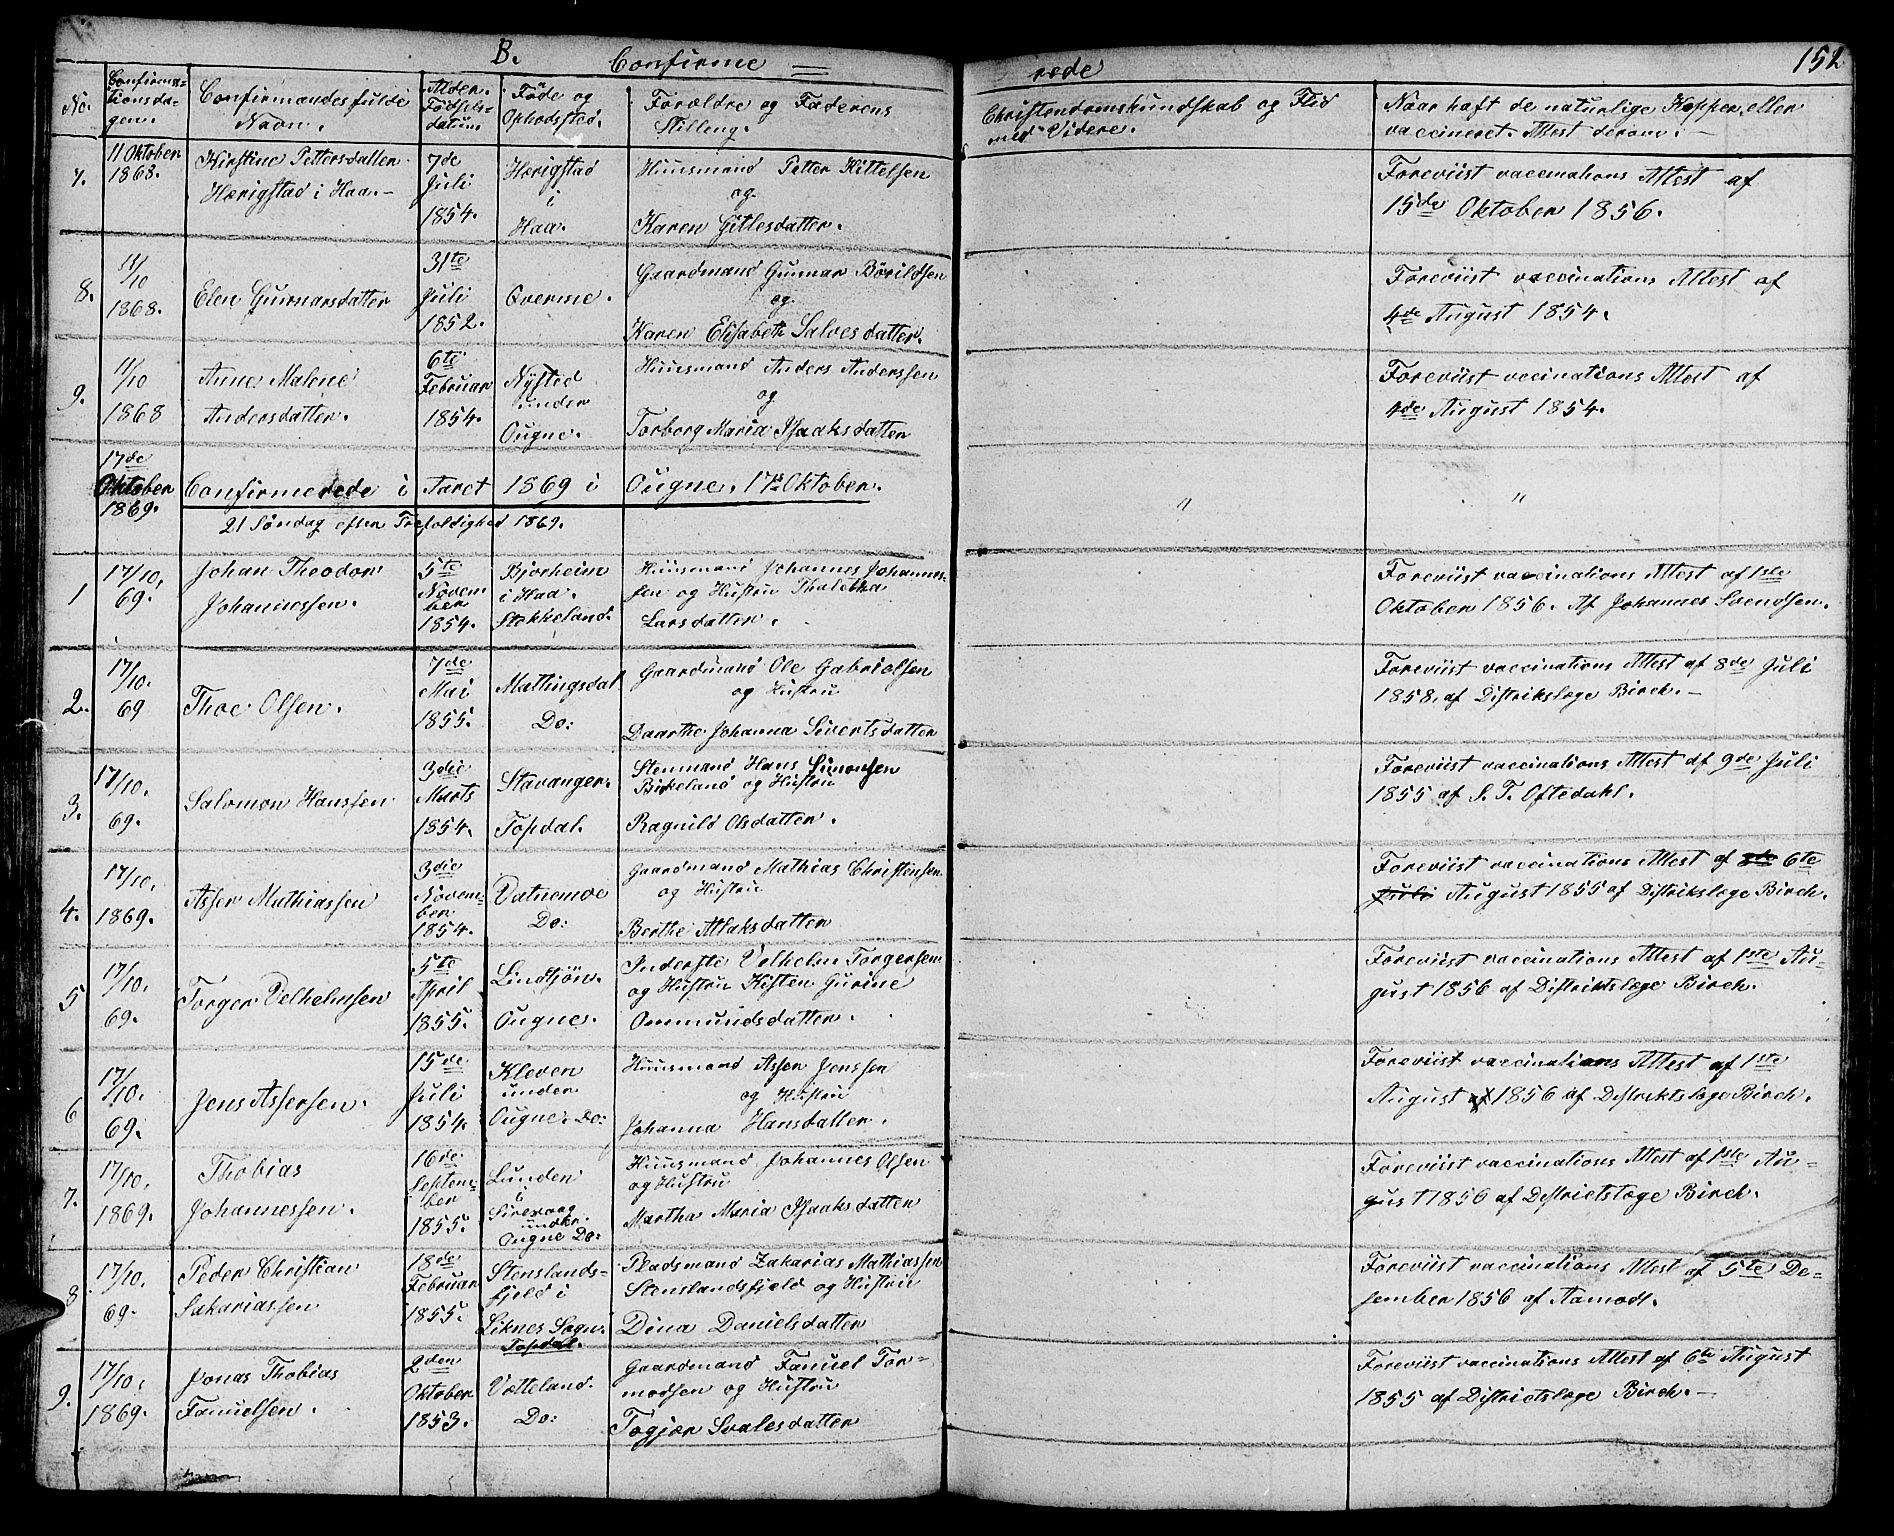 B. Confirme = rede 152
No. Confirma- tionsda- gen. Confirmandes fulde Navn. Alder. Fødsels- datum Føde og Opholdsted. Forældre og Faderens Stilling. Christendomskundskab og Flid med Videre. Naar haft de naturlige Kopper, eller vaccineret. Attest derom. -
7. 11 Oktober 1868. Kirstine Pettersdatter Hærigstad i Haa. - 7de Juli 1854. Hærigstad i Haa. Huusmand Petter Kittelsen og Karen Gitlesdatter. Foreviist vaccinations Attest af 15de Oktober 1856.
8. 11/10 1868. Elen Gunnarsdatter 31te Juli 1852. Qverme. Gaardmand Gunnar Börildsen og Karen Elisabeth Salvesdatter. Foreviist vaccinations Attest af 4de August 1854.
9. 11/10 1868 Anne Malene Andersdatter. 6te Februar 1854. Nysted under Ougne. Huusmand Anders Anderssen og Torborg Maria Isaaksdatter Foreviist veccinations Attest af 4de August 1854.
17de Oktober 1869. Confirmerede i Aaret 1869 i Ougne. 17de Oktober. " "
21 Söndag efter Trefoldighed 1869.
1 17/10. 69. Johan Theodor Johannessen. 5te Novem ber 1854. Bjorheim i Haa. Stokkeland. Huusmand Johannes Johannes- sen og Hustru Tholetha Larsdatter. Foreviist vaccinations Attest af 1ste Oktober 1856. Af Johannes Svendsen.
2. 17/10. 69 Thoe Olsen. 7de Mai 1855. Mattingsdal Do: Gaardmand Ole Gabrielsen og Hustru Daarthe Johanna Sivertsdatter Foreviist vaccinations Attest af 8de Juli 1858. af Distriktslæge Birch. -
3. 17/10. 69. Salomon Hanssen 3die Marts 1854. Stavanger. Topdal. Stenmand Hans Simonsen Birkeland og Hustru Ragnild Olsdatter. Foreviist vaccinations Attest af 9de Juli 1855 af S. T. Oftedahl.
4. 17/10. 1869. Asser Mathiassen 3die Novem- ber 1854. Vatnemoe Do: Gaardmand Mathias Christensen. og Hustru Berthe Atlaksdatter Foreviist vaccinations Attest af 6te Juli August 1855 af Distrikslæge Birch.
5 17/10. 69. Torger Velhelmsen 5te April 1855. Lindtjön. Ougne. Inderste Velhelm Torgersen og Hustru Kisten Gurine Ommundsdatter. Foreviist vaccinations Attest af 1ste Au- gust 1856 af Distriktslæge Birch.
6 17/10. 69. Jens Assersen. 15de Juli 1854. Kleven under Ougne. Do: Huusmand Asser Jenssen og Hustru Johanna Hansdatter. Foreviist vaccinations Attest af 1ste August 1856 af Distriktslæge Birch.
7. 17/10. 1869. Thobias Johannessen. 16de Septem- ber 1855. Lunden i Sirevaag under Ougne Do: Huusmand Johannes Olsen og Hustru Martha Maria Isaaksdatter Foreviist vaccinations Attest af 1ste Au- gust 1856 af Districtslæge Birch.
8 17/10. 69. Peder Christian Sakariassen 18de Februar 1855. Stenslands- fjeld i Liknes Sogn. Topdal. Pladsmand Zakarias Mathiassen Stenslandsfjeld og Hustru Dina Danielsdatter Foreviist vaccinations Attest af 5te De- sember 1856 af Aamodt.
9. 17/10. 1869. Jonas Thobias Fanuelsen. 2den Oktober 1853. Vetteland. Do: Gaardmand Fanuel Tor- modsen og Hustru Togjær Svalesdatter Foreviist vaccinations Attest af 6te August 1855 af Districtslæge Birch. -